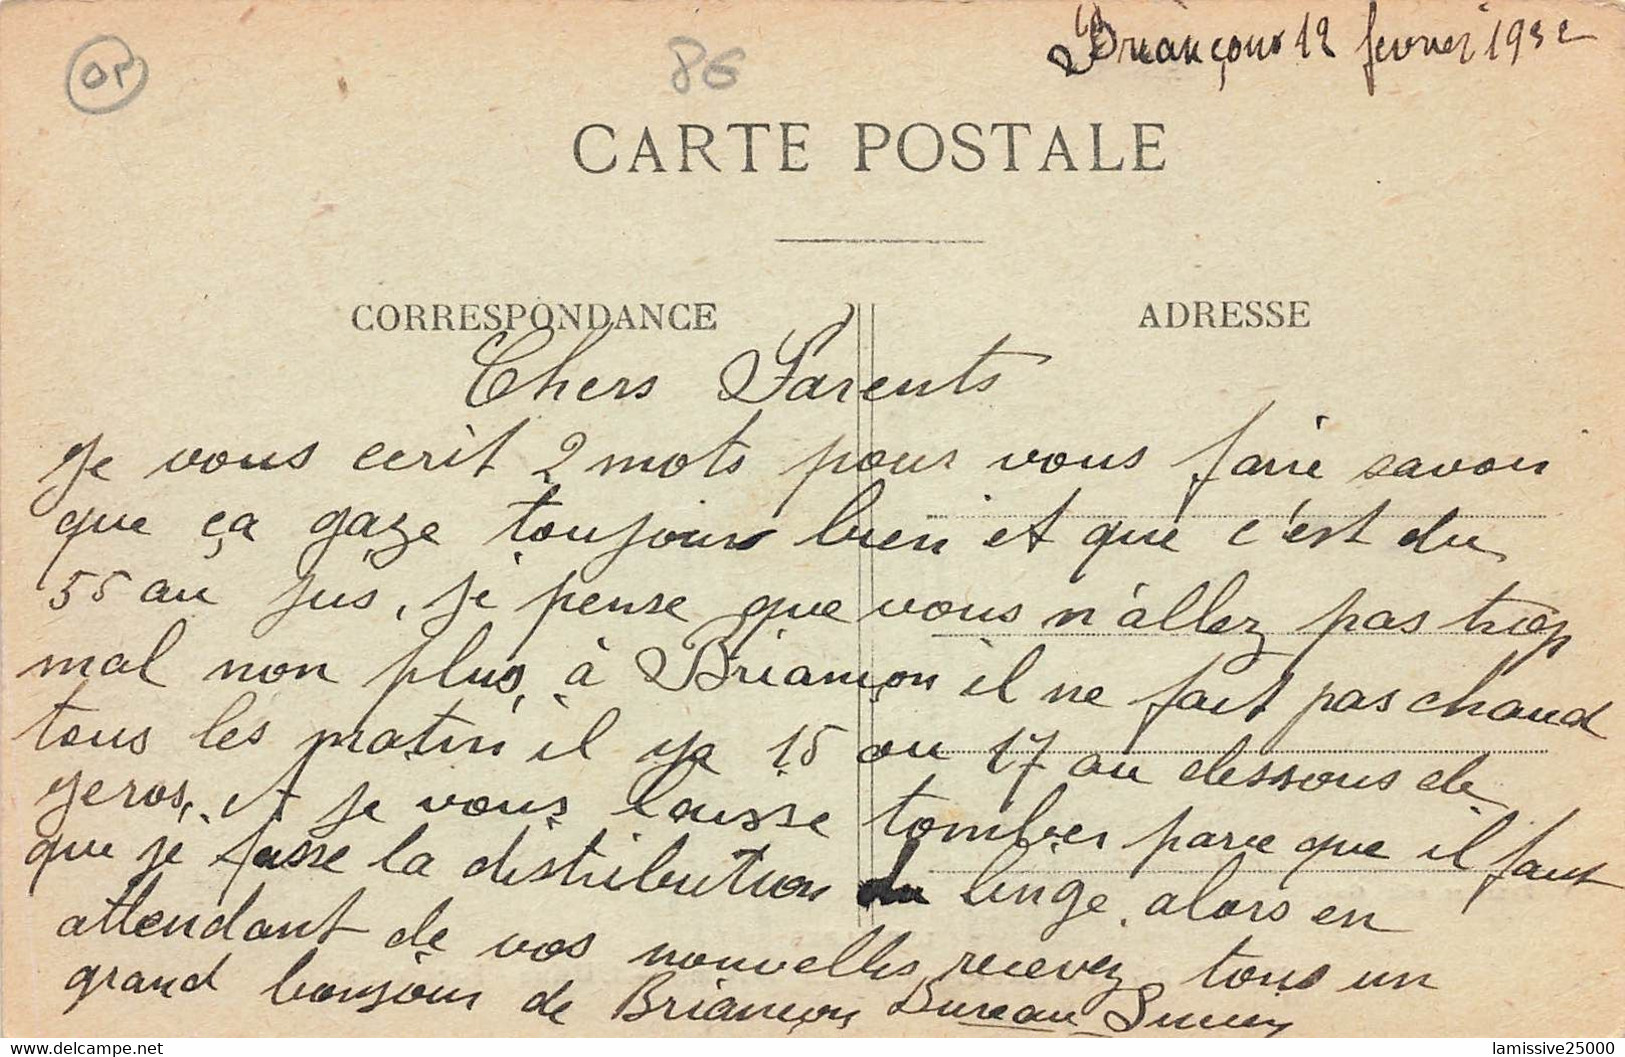 OP
86
Briançon 12 février 1932
CARTE POSTALE
CORRESPONDANCE
ADRESSE
Chers Parents
Je vous ecrit 2 mots pour vous faire savoir
que ça gaze toujours bien et que c'est du
55 au jus, je pense que vous n'allez pas trop
mal non plus, à Briançon il ne fait pas chaud
tous les matin il ya 15 ou 17 au dessous de
zeros, et je vous laisse tomber parce que il faut
que je fasse la distribution du linge, alors en
attendant de vos nouvelles recevez tous un
grand bonjour de Briançon Bureau
delcampe.net
lamissive25000